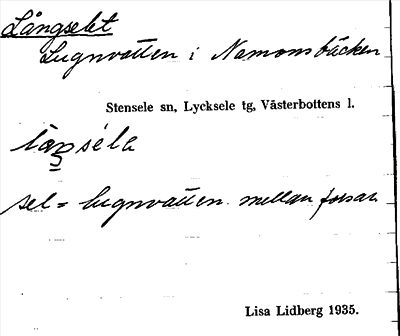 Långselet
Lugnvatten i Namonsbäcken
Stensele sn, Lycksele tg, Västerbottens l.
sel = lugnvatten mellan forsar
Lisa Lidberg 1935.